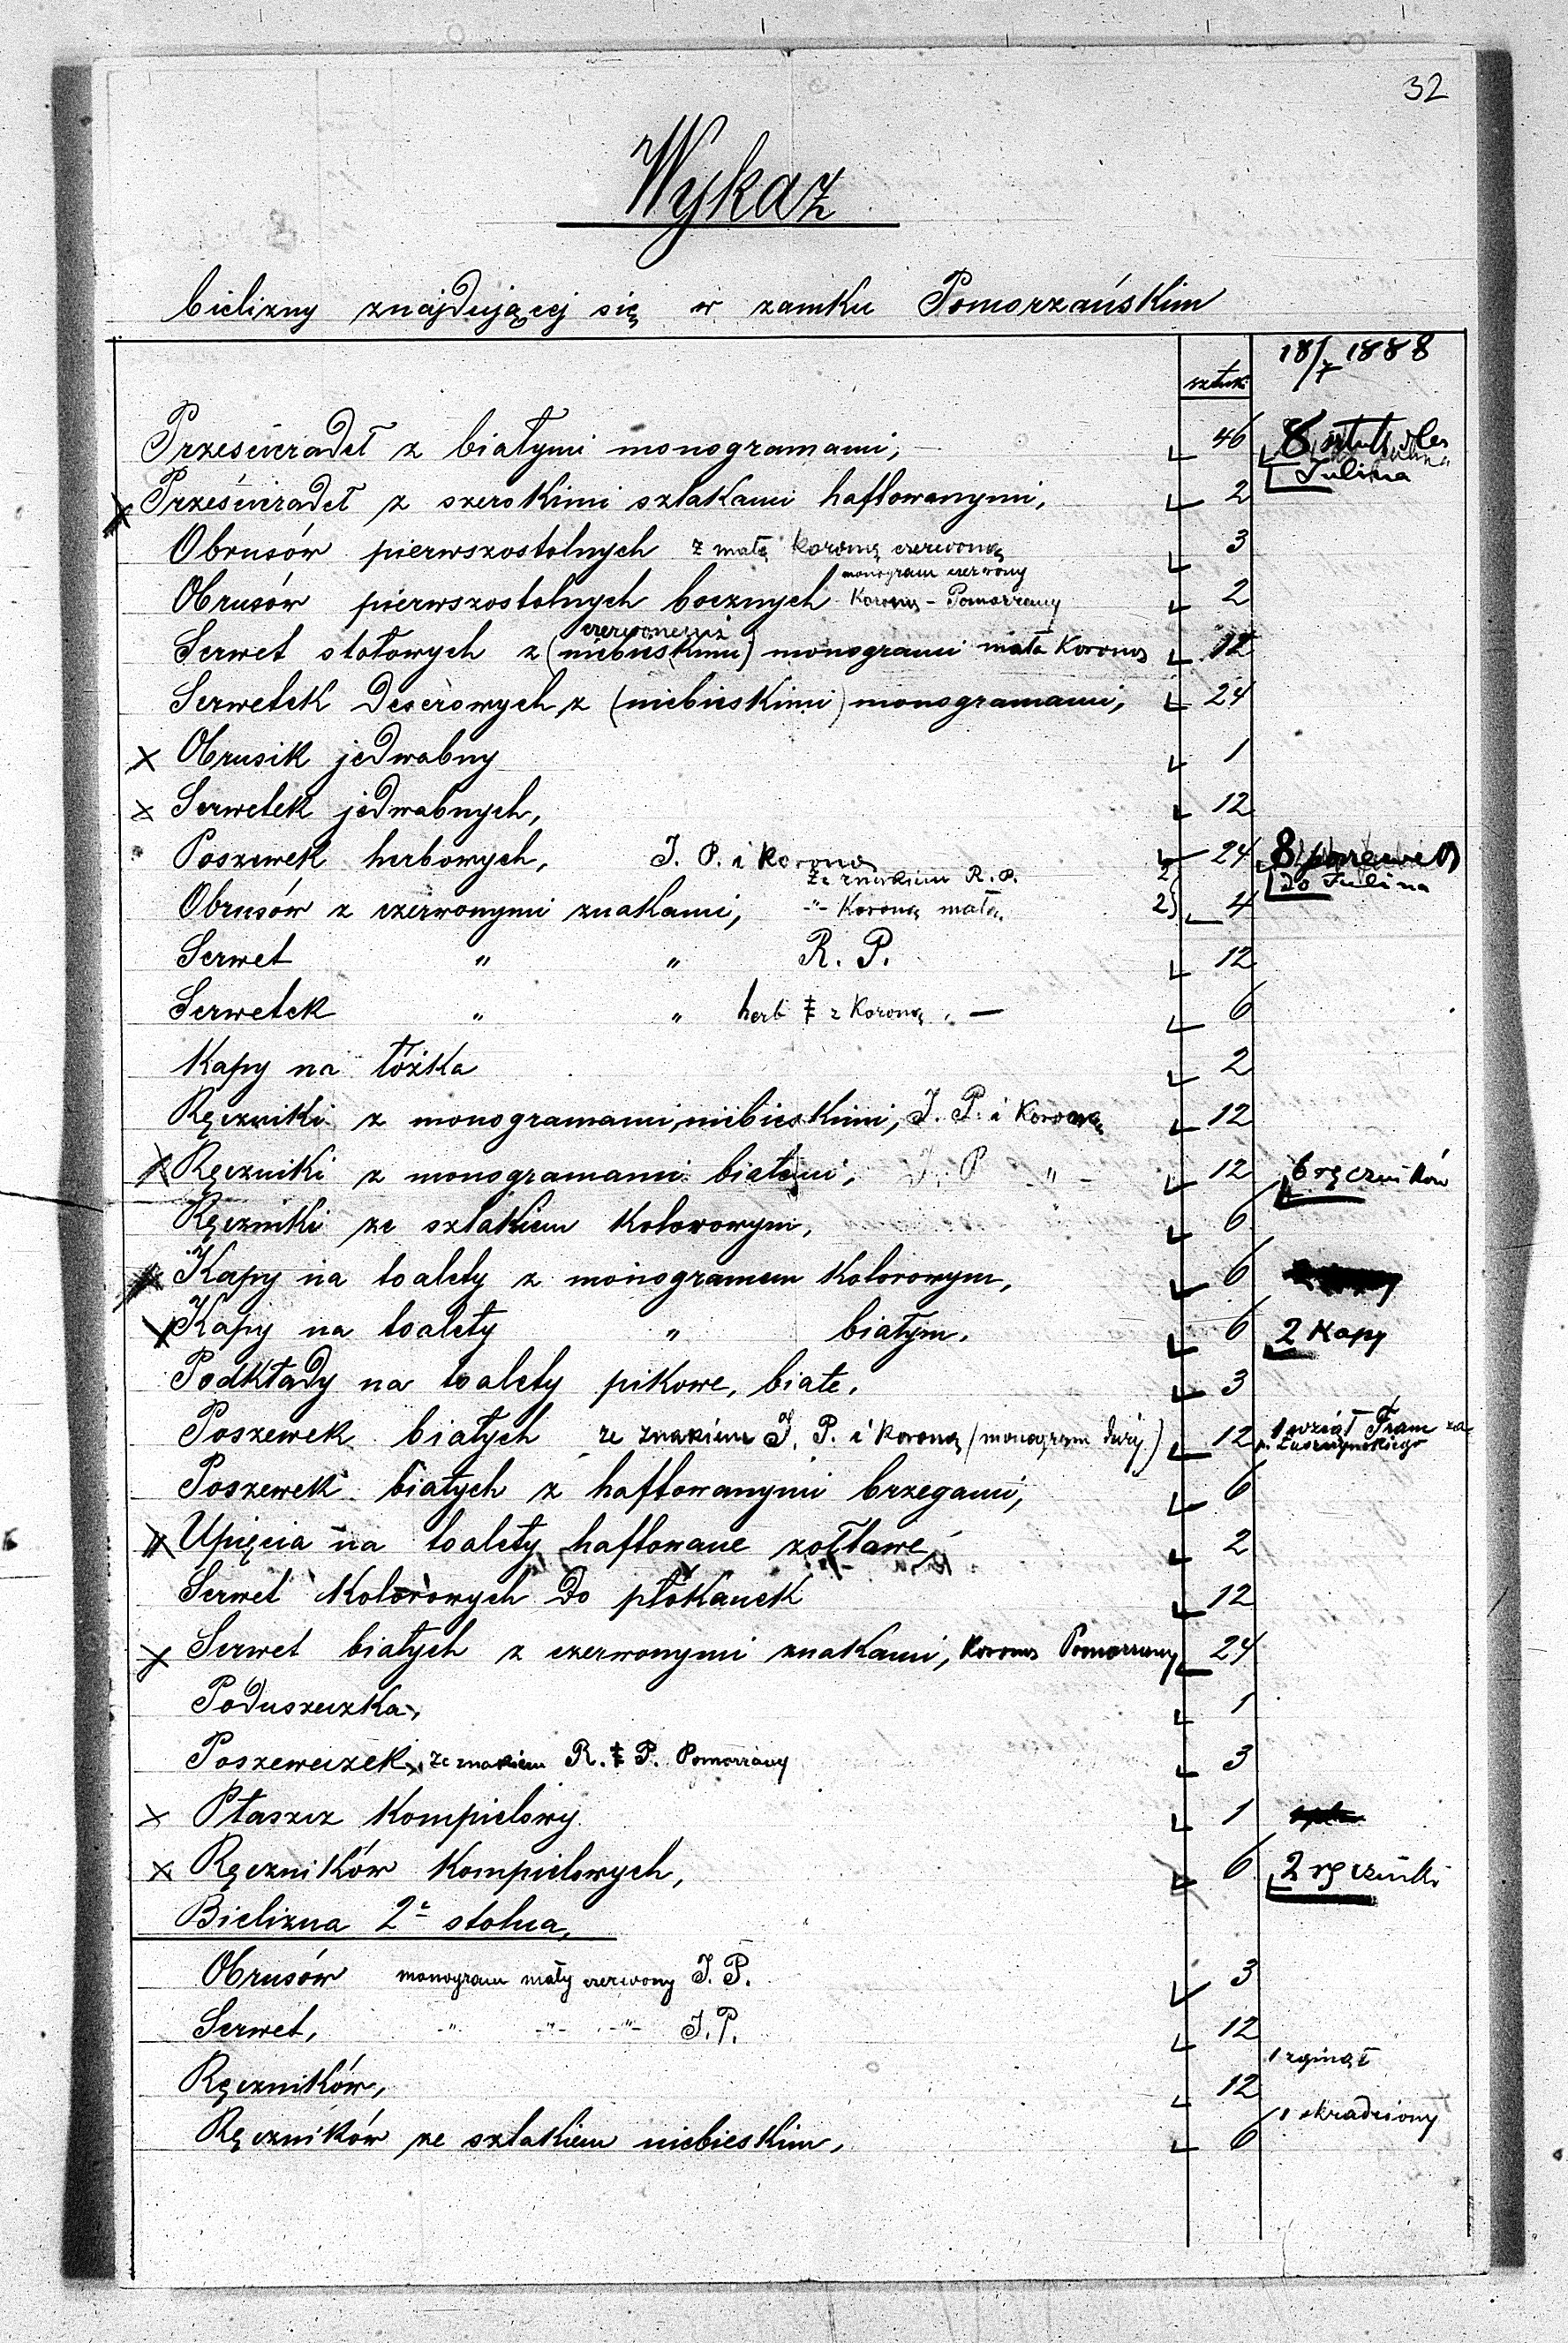 32
Wykaz
bielizny znajdującej się w zamku Pomorzańskim
sztuk 18/7 1888
Prześcieradeł z białymi monogramami, 46 8 sztuk
Julina
Prześcieradeł z szerokimi szlakami haftowanymi, 2
Obrusów pierwszostolnych z małą koroną czerwoną 3
monogram czerwony
Obrusów pierwszostolnych bocznych Korona - Pomorzany 2
czerwonemi
Serwet stołowych z (niebieskimi) monogrami mała Korona 12
Serwetek deserowych z (niebieskimi) monogramami, 24
x Obrusik jedwabny 1
x Serwetek jedwabnych, 12
Poszewek herbowych, J. P. i korona 24 8 poszewek
ze znakiem R. P. 2 do Julina
Obrusów z czerwonymi znakami, -"- Koroną małą 2} 4
Serwet " " R. P. 12
Serwetek " " herb ‡ z Koroną . — 6
Kapy na łóżka 2
Ręczniki z monogramami niebieskimi, J. P. i Koroną 12
x Ręczniki z monogramami białemi, J. P. -"- 12 6 ręczników
Ręczniki ze szlakiem kolorowym, 6
x Kapy na toalety z monogramem kolorowym, 6
x Kapy na toalety " białym. 6 2 Kapy
Podkłady na toalety pikowe, białe. 3
Poszewek białych ze znakiem J. P. i koroną (monogram duży) 12 1 wziął Fran za
p. Łuszczyńskiego
Poszewek białych z haftowanymi brzegami, 6
x Upięcia na toalety haftowane zołtawe, 2
Serwet Kolorowych do płókanek 12
x Serwet białych z czerwonymi znakami, Korona Pomorzany 24
Poduszeczka, 1
Poszeweczek, ze znakiem R. ‡ P. Pomorzany 3
x Płaszcz Kompielowy 1
x Ręczników Kompielowych, 6 2 ręczniki
Bielizna 2a stolna,
Obrusów monogram mały czerwony J. P. 3
Serwet, -"- -"- -"- J. P. 12
1 zginął
Ręczników, 12
1 skradziony
Ręczników ze szlakiem niebieskim, 6